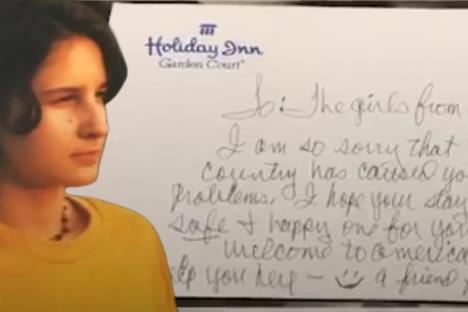 Holiday Inn
Garden Court
To: The girls from
I am so sorry that
country has caused
problems. I hope your stay
safe & happy one for you
welcome to america
help you here — a friend